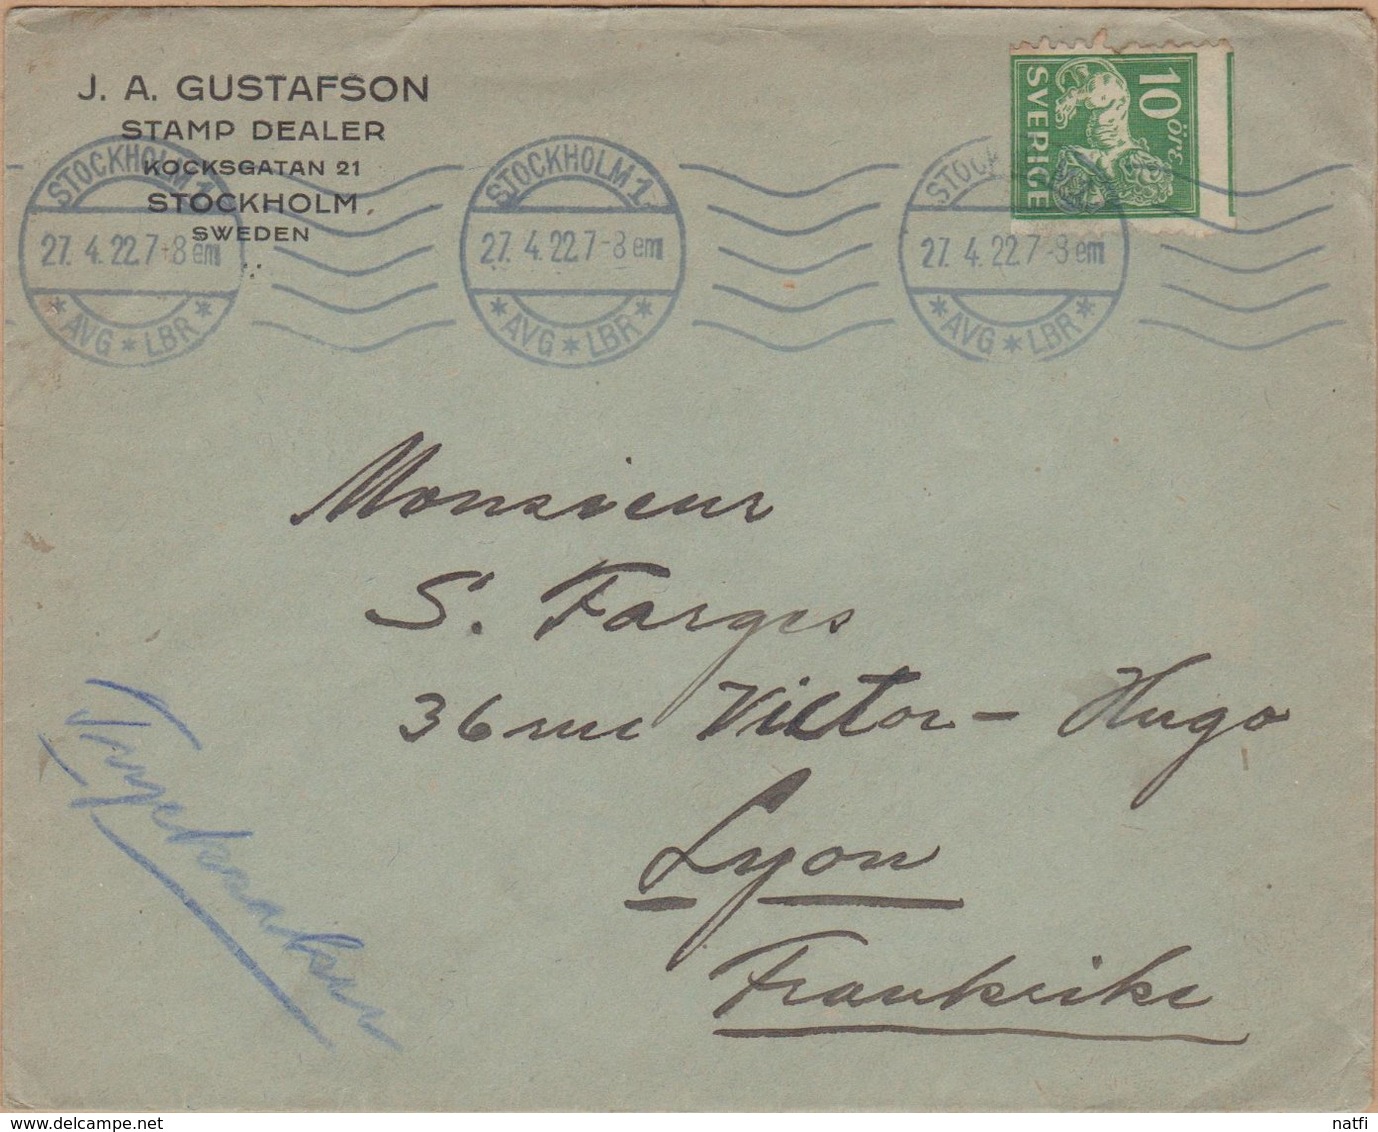 J. A. GUSTAFSON
STAMP DEALER
KOCKSGATAN 21
STOCKHOLM
SWEDEN
10 öre
SVERIGE
STOCKHOLM 1.
27. 4. 22. 7-8 em
* AVG * LBR *
STOCKHOLM 1.
27. 4. 22. 7-8 em
* AVG * LBR *
STOCK
27. 4. 22. 7-8 em
* AVG * LBR *
Monsieur
S. Farges
36 rue Victor-Hugo
Lyon
Frankrike
Trycksaker
www.delcampe.net
natfi